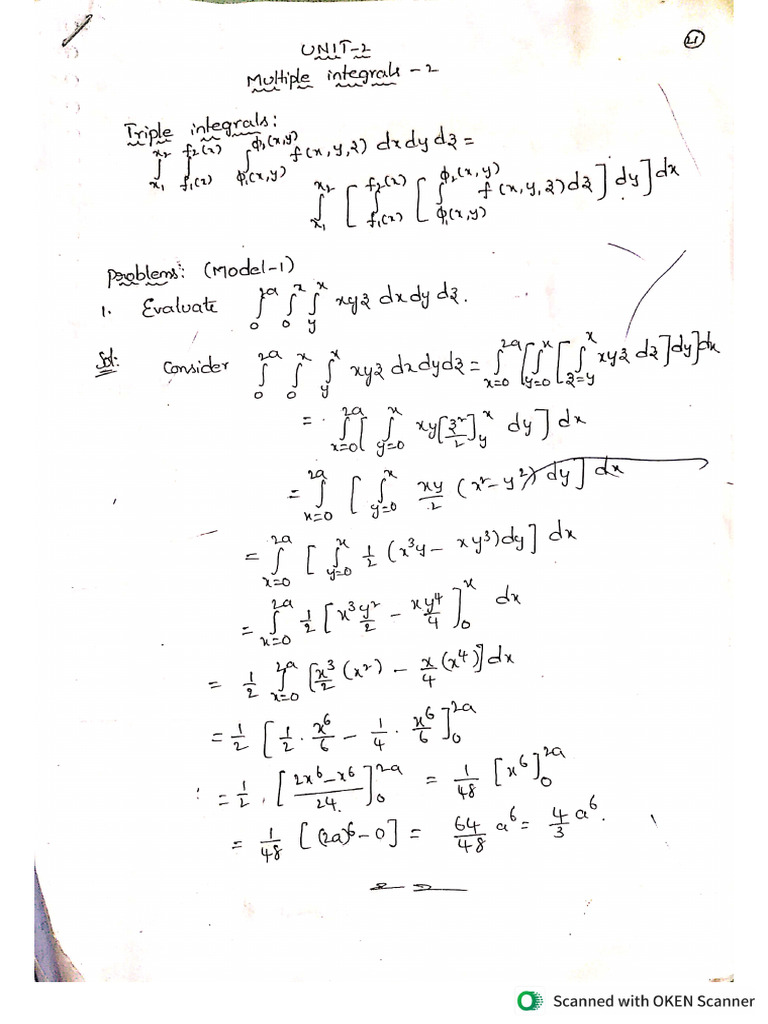 21
UNIT-2
Multiple integrals - 2
Triple integrals:
∫_{x₁}^{x₂} ∫_{f₁(x)}^{f₂(x)} ∫_{ϕ₁(x,y)}^{ϕ₂(x,y)} f(x,y,z) dx dy dz =
∫_{x₁}^{x₂} [ ∫_{f₁(x)}^{f₂(x)} [ ∫_{ϕ₁(x,y)}^{ϕ₂(x,y)} f(x,y,z) dz ] dy ] dx
Problems: (Model-1)
1. Evaluate ∫_0^{2a} ∫_0^x ∫_y^x xyz dx dy dz.
Sol: Consider ∫_0^{2a} ∫_0^x ∫_y^x xyz dx dy dz = ∫_{x=0}^{2a} [ ∫_{y=0}^x [ ∫_{z=y}^x xyz dz ] dy ] dx
= ∫_{x=0}^{2a} [ ∫_{y=0}^x xy [z²/2]_y^x dy ] dx
= ∫_{x=0}^{2a} [ ∫_{y=0}^x xy/2 (x² - y²) dy ] dx
= ∫_{x=0}^{2a} [ ∫_{y=0}^x 1/2 (x³y - xy³) dy ] dx
= ∫_{x=0}^{2a} 1/2 [ x³y²/2 - xy⁴/4 ]_0^x dx
= 1/2 ∫_{x=0}^{2a} [ x³/2 (x²) - x/4 (x⁴) ] dx
= 1/2 [ 1/2 · x⁶/6 - 1/4 · x⁶/6 ]_0^{2a}
= 1/2 · [ (2x⁶ - x⁶)/24 ]_0^{2a} = 1/48 [x⁶]_0^{2a}
= 1/48 [ (2a)⁶ - 0 ] = 64/48 a⁶ = 4/3 a⁶.
Scanned with OKEN Scanner